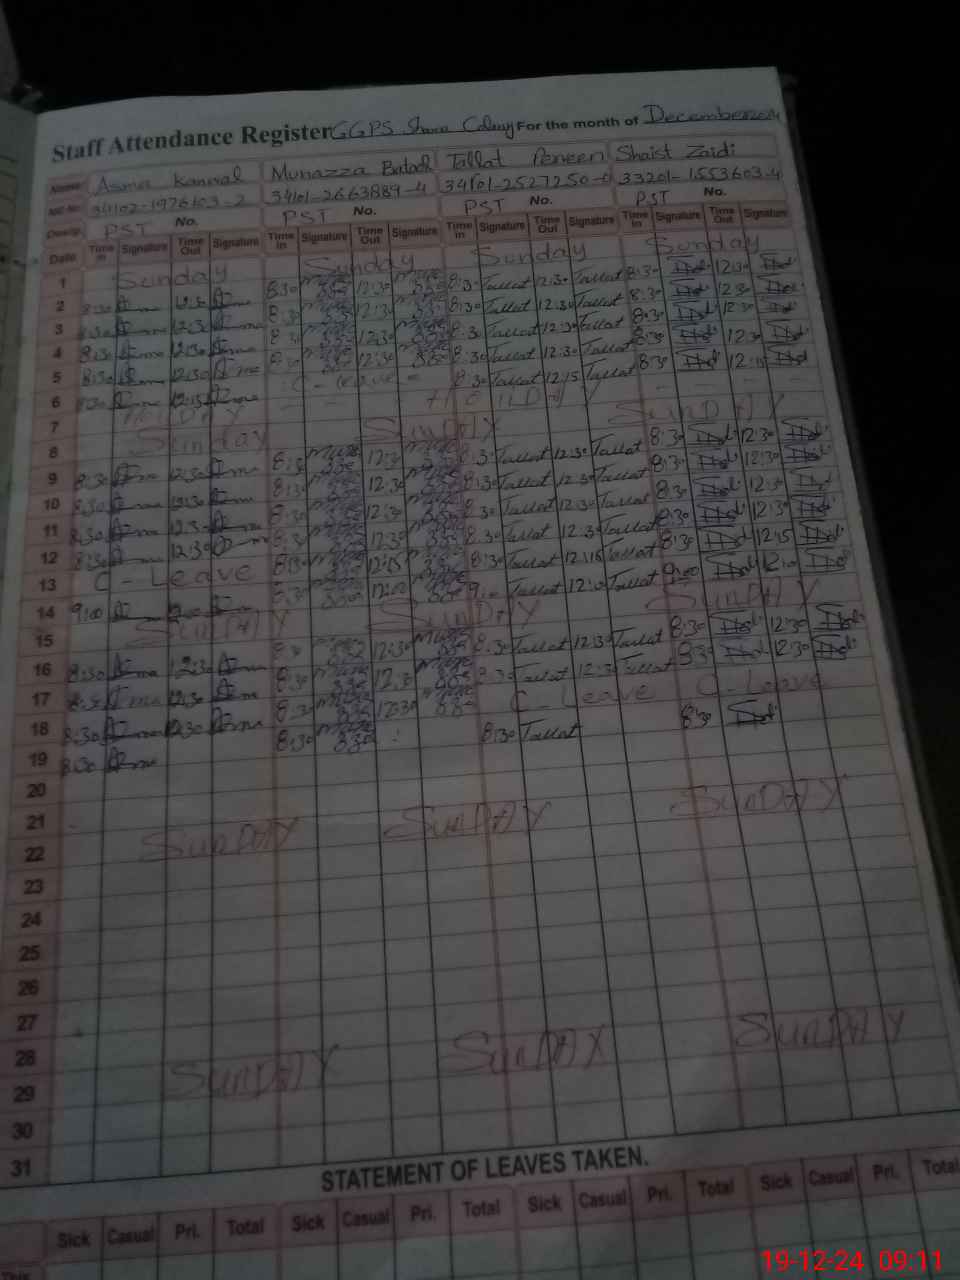 Staff Attendance Register GGPS Shara Colony For the month of December 2024
Name: Asma Kanwal Munazza Batool Tallat Perveen Shaist Zaidi
NIC No. 34102-1976103-2 34101-2663889-4 34101-2527250- 33201-1553603-4
Desig. PST No. PST No. PST No. PST No.
Date Time In Signature Time Out Signature Time In Signature Time Out Signature Time In Signature Time Out Signature Time In Signature Time Out Signature
1 Sunday Sunday Sunday Sunday
2 8:30 12:30 8:30 12:30 8:30 Tallat 12:30 Tallat 8:30 12:30
3 8:30 12:30 8:30 12:30 8:30 Tallat 12:30 Tallat 8:30 12:30
4 8:30 12:30 8:30 12:30 8:30 Tallat 12:30 Tallat 8:30 12:30
5 8:30 12:30 8:30 12:30 8:30 Tallat 12:30 Tallat 8:30 12:30
6 8:30 12:15 C-leave 8:30 Tallat 12:15 Tallat 8:30 12:15
7 HOLIDAY - - HOLIDAY - - -
8 Sunday SunDAY SunDAY
9 8:30 12:30 8:30 12:30 8:30 Tallat 12:30 Tallat 8:30 12:30
10 8:30 12:30 8:30 12:30 8:30 Tallat 12:30 Tallat 8:30 12:30
11 8:30 12:30 8:30 12:30 8:30 Tallat 12:30 Tallat 8:30 12:30
12 8:30 12:30 8:30 12:30 8:30 Tallat 12:30 Tallat 8:30 12:30
13 C - Leave 8:30 12:15 8:30 Tallat 12:15 Tallat 8:30 12:15
14 9:00 12:00 12:00 9:00 Tallat 12:00 Tallat 9:00 12:00
15 SunDAY SunDAY SunDAY
16 8:30 12:30 8:30 12:30 8:30 Tallat 12:30 Tallat 8:30 12:30
17 8:30 12:30 8:30 12:30 8:30 Tallat 12:30 Tallat 8:30 12:30
18 8:30 12:30 8:30 12:30 C - Leave C - Leave
19 8:30 8:30 8:30 Tallat 8:30
20
21
22 SunDAY SunDAY SunDAY
23
24
25
26
27
28
29 SunDAY SunDAY SunDAY
30
31
STATEMENT OF LEAVES TAKEN.
Sick Casual Pri. Total Sick Casual Pri. Total Sick Casual Pri. Total Sick Casual Pri. Total
This
19-12-24 09:11